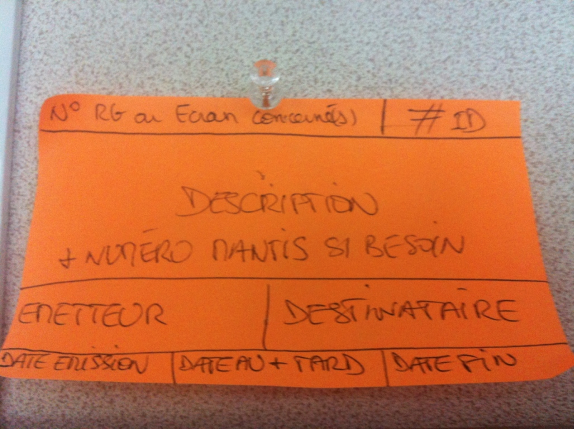 N° RG ou Ecran concerné(s) # ID
DESCRIPTION
+ NUMÉRO MANTIS SI BESOIN
EMETTEUR DESTINATAIRE
DATE EMISSION DATE AU + TARD DATE FIN